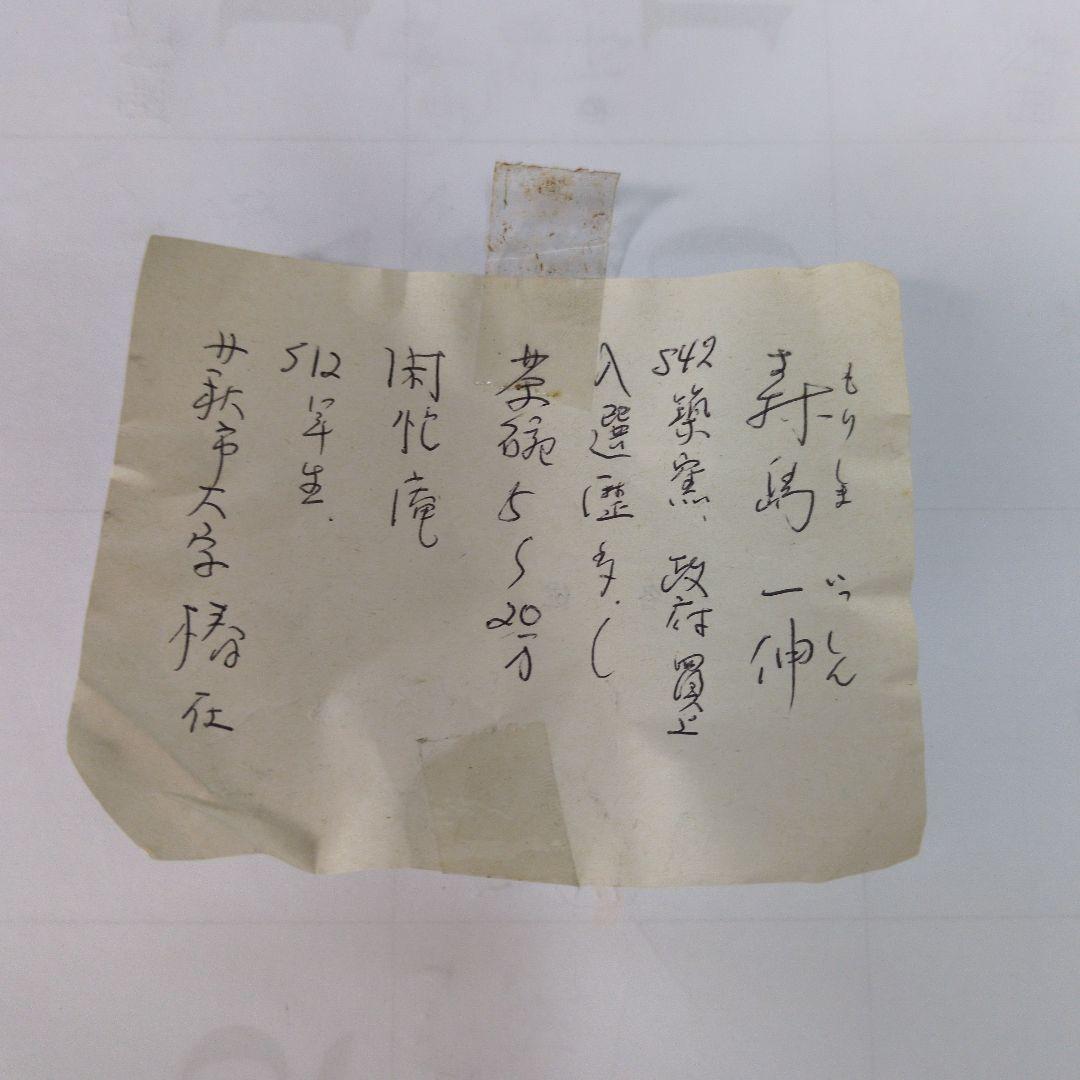 もりま いっしん
寿馬 一伸
S42築窯、政府買上
入選歴多し
茶碗5〜20万
閑忙庵
S12年生.
萩市大字椿在